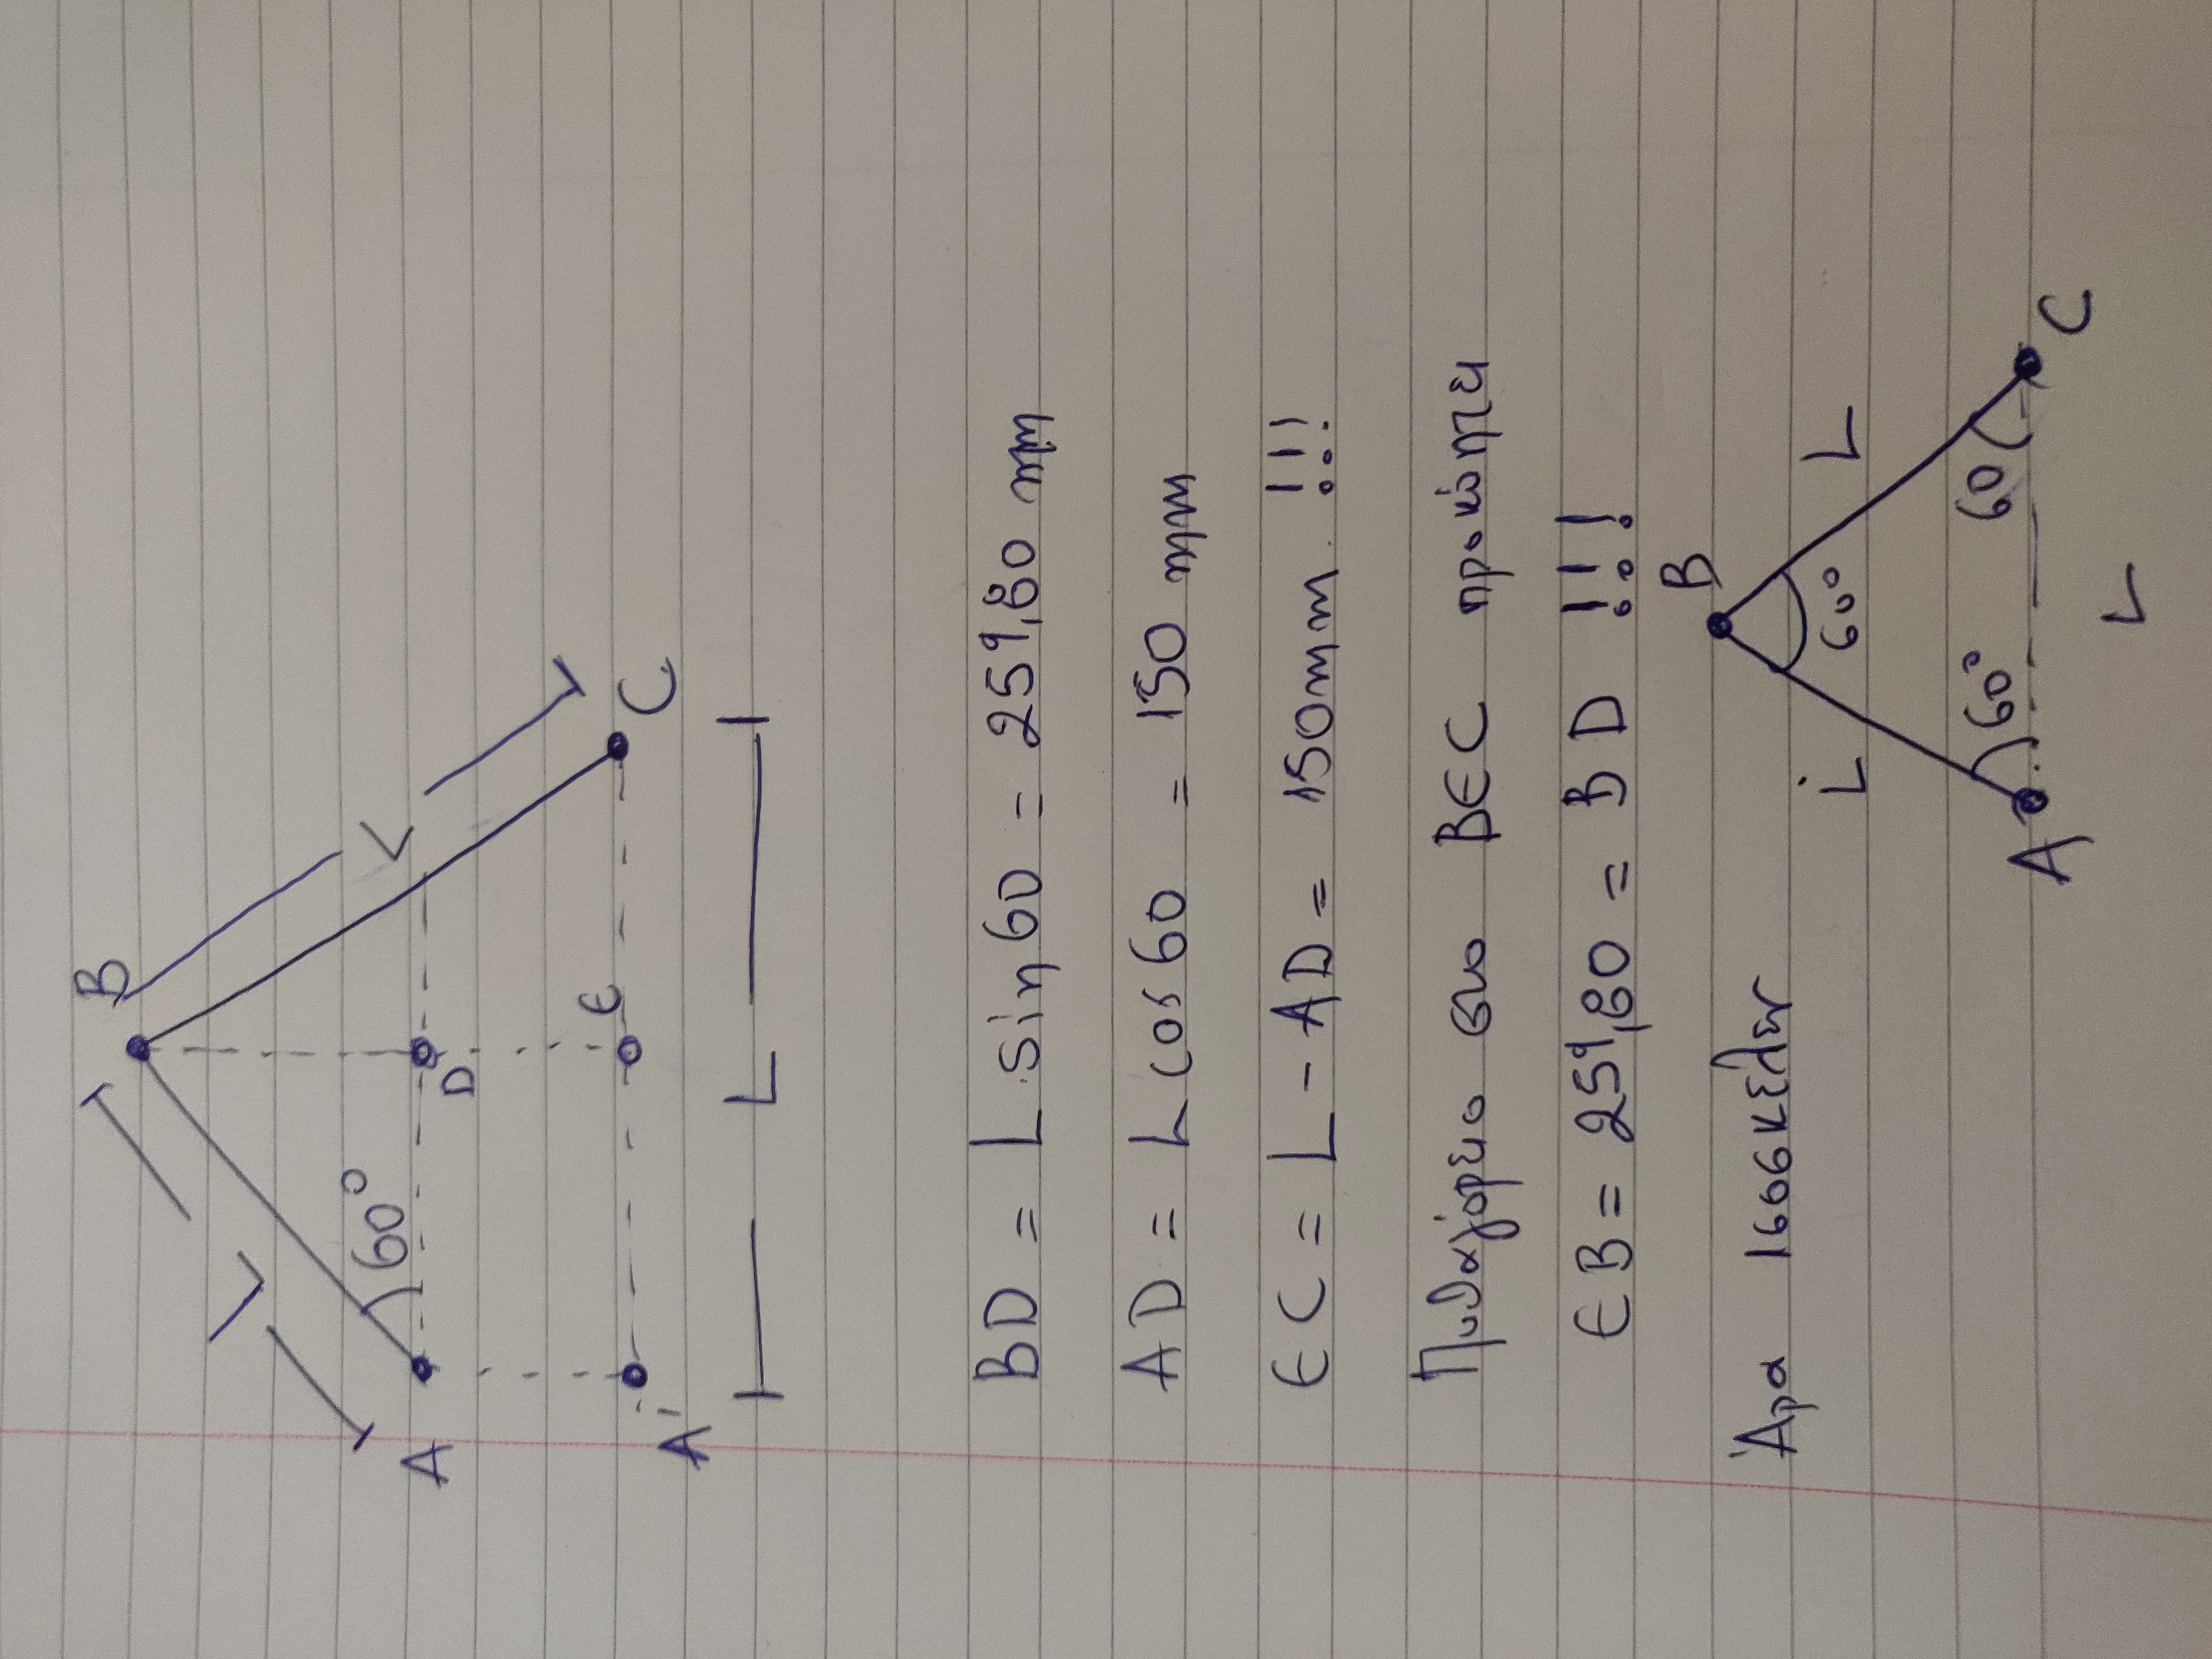 B
L
L
60°
A
D
E
C
A'
L
BD = L sin60 = 259,80 mm
AD = L cos 60 = 150 mm
EC = L - AD = 150mm !!!
Πυθαγόρειο στο BEC προκύπτει
EB = 259,80 = BD !!!
Άρα ισοσκελές
B
L
60°
L
60°
60
A
C
L